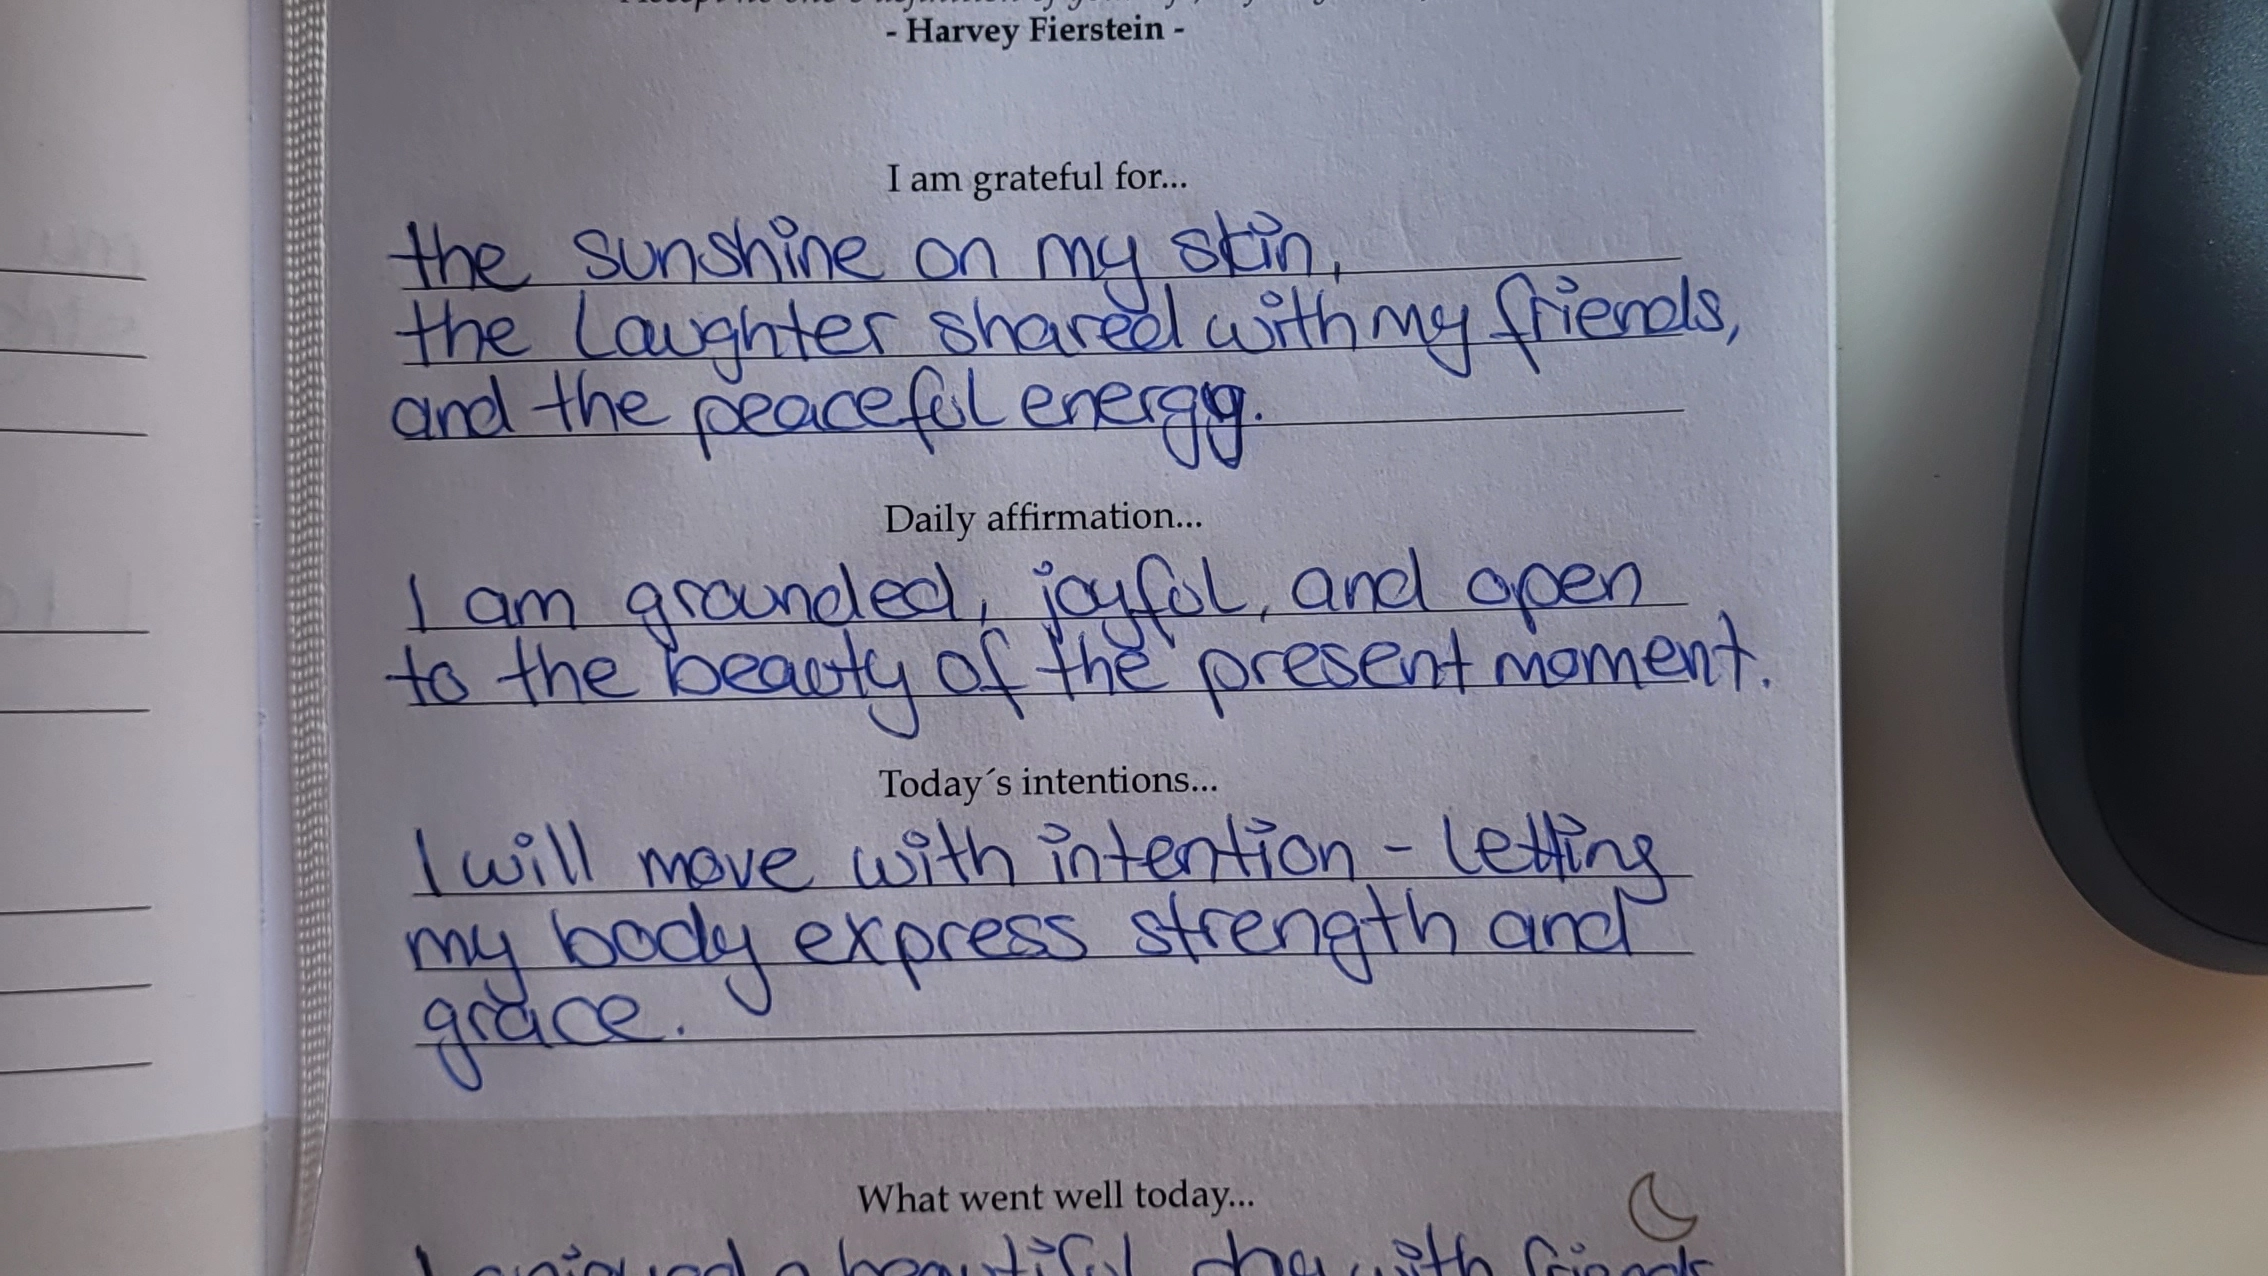 - Harvey Fierstein -
I am grateful for...
the sunshine on my skin,
the laughter shared with my friends,
and the peaceful energy.
Daily affirmation...
I am grounded, joyful, and open
to the beauty of the present moment.
Today´s intentions...
I will move with intention - letting
my body express strength and
grace.
What went well today...
I enjoyed a beautiful day with friends